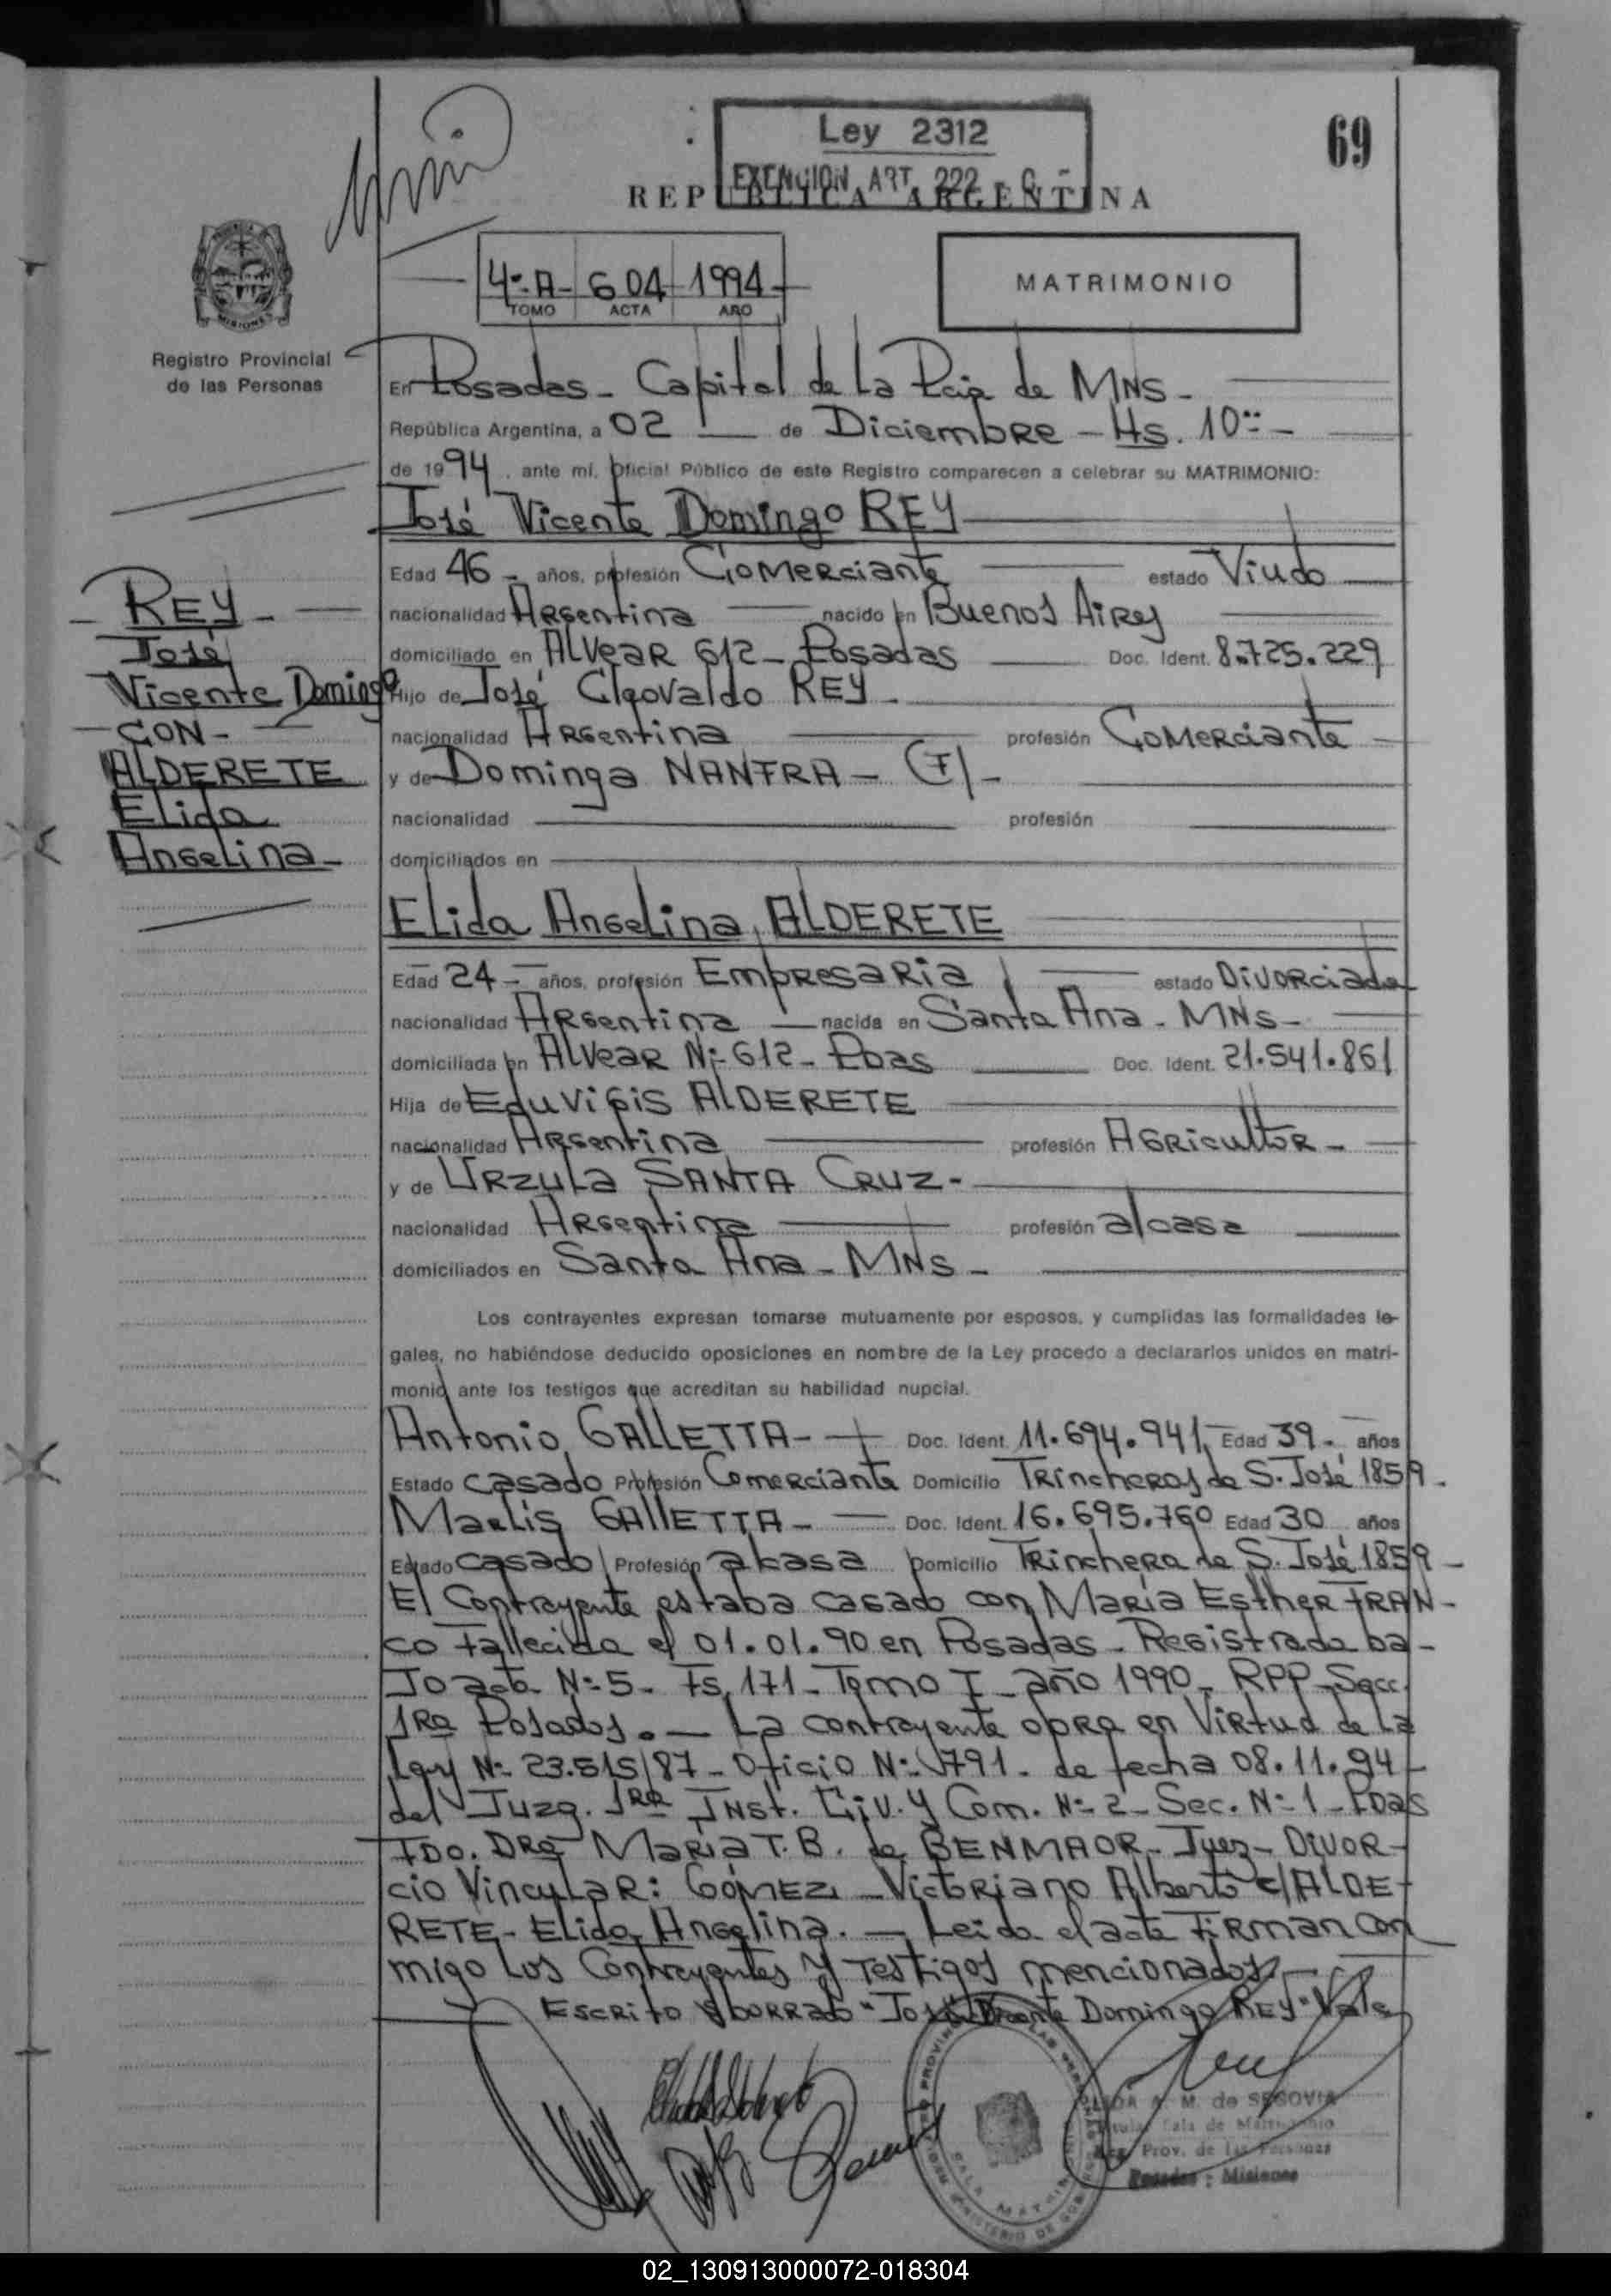 69
Ley 2312
EXENCION ART. 222
REPUBLICA ARGENTINA
4º-A- 604 1994-
TOMO ACTA AÑO
MATRIMONIO
MISIONES
Registro Provincial
de las Personas
En Posadas - Capital de La Pcia de MNS -
República Argentina, a 02 de Diciembre - Hs. 10
de 1994. ante mí, Oficial Público de este Registro comparecen a celebrar su MATRIMONIO:
José Vicente Domingo REY
Edad 46 - años, profesión Comerciante estado Viudo
nacionalidad Argentina nacido en Buenos Aires
domiciliado en Alvear 612 - Posadas Doc. Ident. 8.725.229
Hijo de José Cleovaldo REY -
nacionalidad Argentina profesión Comerciante
y de Dominga NANFRA - (F) -
nacionalidad profesión
domiciliados en
REY -
José
Vicente Domingo
- CON -
ALDERETE
Elida
Angelina -
Elida Angelina ALDERETE
Edad 24 - años, profesión Empresaria estado Divorciada
nacionalidad Argentina nacida en Santa Ana - MNS -
domiciliada en Alvear Nº 612 - Pdas Doc. Ident. 21.541.861
Hija de Eduvigis ALDERETE
nacionalidad Argentina profesión Agricultor -
y de Urzula SANTA CRUZ -
nacionalidad Argentina profesión a/casa
domiciliados en Santa Ana - MNS -
Los contrayentes expresan tomarse mutuamente por esposos, y cumplidas las formalidades le-
gales, no habiéndose deducido oposiciones en nombre de la Ley procedo a declararlos unidos en matri-
monio ante los testigos que acreditan su habilidad nupcial.
Antonio GALLETTA - Doc. Ident. 11.694.941 Edad 39 - años
Estado Casado Profesión Comerciante Domicilio Trincheras de S. José 1859 -
Maelis GALLETTA - Doc. Ident. 16.695.760 Edad 30 años
Estado casado Profesión a/casa Domicilio Trinchera de S. José 1859 -
El Contrayente estaba casado con María Esther FRAN-
CO fallecida el 01.01.90 en Posadas - Registrada ba-
jo acta Nº 5 - Fs. 171 - Tomo I - año 1990 - RPP - Secc.
1Ra Posadas. - La contrayente opra en virtud de la
Ley Nº 23.515/87 - Oficio Nº 1791 - de fecha 08.11.94 -
del Juzg. 1Ra Inst. Civ. y Com. Nº 2 - Sec. Nº 1 - Pdas
FDO. DRa María T. B. de BENMAOR - Juez - DIVOR-
cio Vincular: GÓMEZ - Victoriano Alberto c/ALDE-
RETE - Elida Angelina. - Leida el acta firman con
migo los Contrayentes y Testigos mencionados. -
Escrito s/borrado "José Vicente Domingo REY" Vale
A. M. de SEGOVIA
Sala de Matrimonio
Prov. de las Personas
Posadas : Misiones
02_130913000072-018304